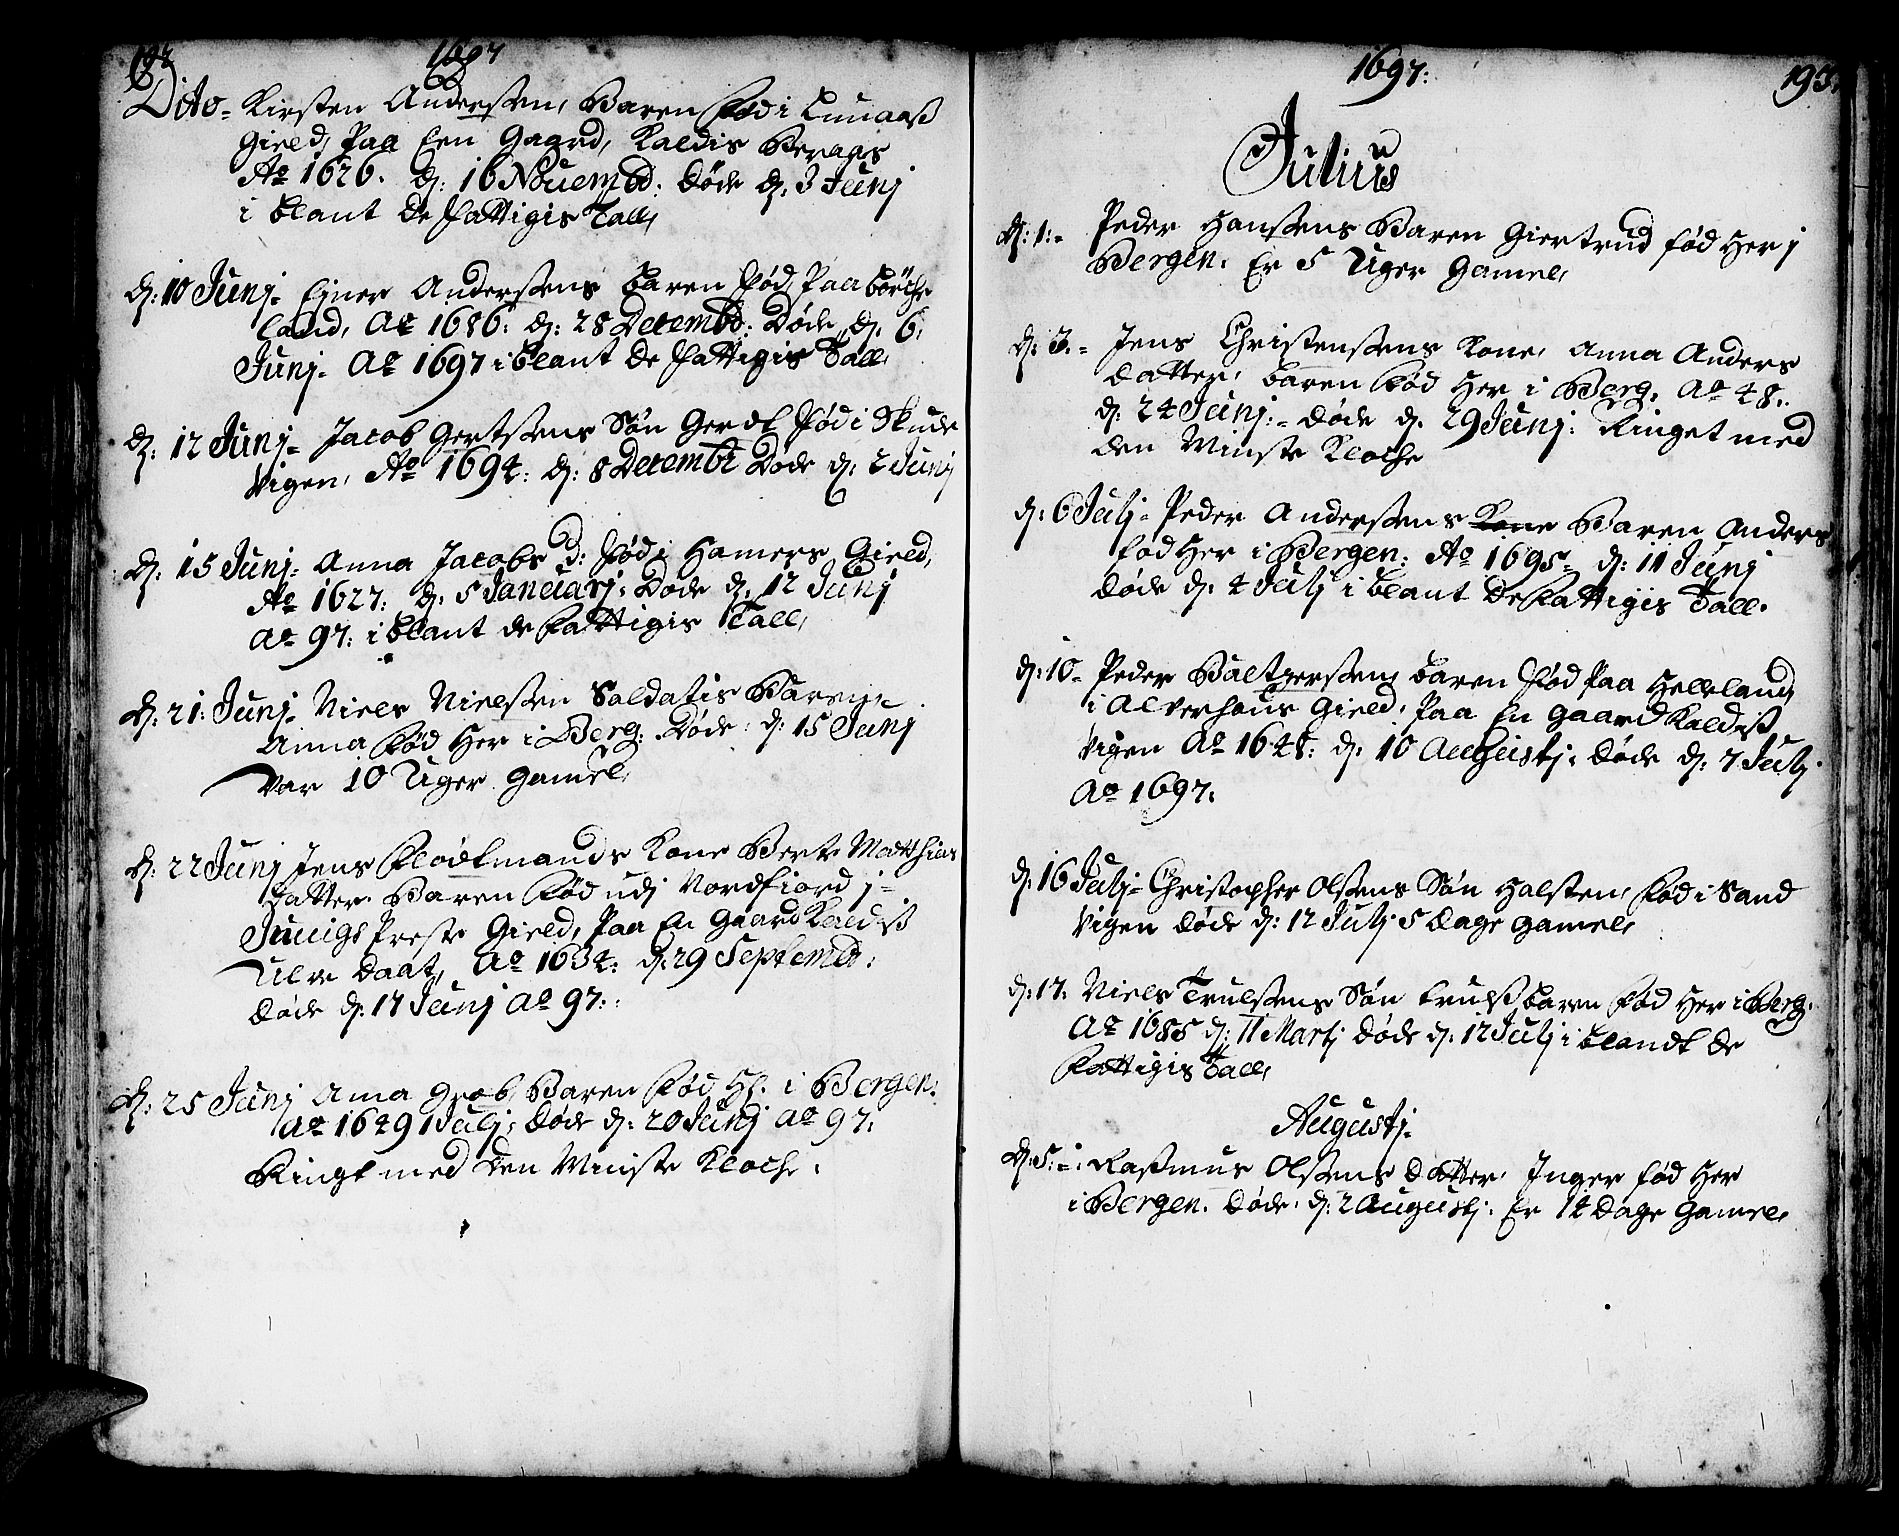 192
1697
Dito - Kirsten Anderssen, Baren Fød i Lunaaß
Gield, Paa Een Gaard, Kaldis Beraas
Ao 1626. d: 16 Nouembd: Døde d: 3 Junj
i blant De Fattigis Tall,
d: 10 Junj - Ejner Anderssens baren Fød, Paa börche
land, Ao 1686: d: 28 Decembd: Døde d: 6,
Junj - Ao 1697 i blant de Fattigis Tall,
d: 12 Junj - Jacob Gertssens Søn Gerdt Fød i Skude
Vigen, Ao 1694: d: 8 Decembr Døde d: 2 Junj
d: 15 Junj - Anna Jacobs d: Fød i Hamers Gield,
Ao 1627: d: 5 Januarj: Døde d: 12 Junj
Ao 97: i blant de Fattigis Tall,
d: 21: Junj - Niels Nielssen Soldatis Baren,
Anna Fød Her i Berg: Døde: d: 15 Junj
Var 10 Uger Gamel,
d: 22 Junj Jens Flödtmands Kone Berte Matthias
datter Baren Fød udj Nordfiord j -
Juuigs Preste Gield, Paa En Gaard Kaldiß
Ulve Daat, Ao 1634: d: 29 Septembd:
Døde d: 17 Junj Ao 97:
d: 25 Junj Anna Grob, Baren Fød Hs. i Bergen:
Ao 1649 1 Julj: Døde d: 20 Junj Ao 97:
Ringt med den Minste Kloche:
1697:
193
Julius
d: 1: - Peder Hanssens Baren Giertrud fød Her j
Bergen. Er 5 Uger Gamel,
d: 3. - Jens Christenssens Kone, Anna Anders
datter, baren Fød Her i Berg, Ao 48:
d: 24 Junj: - Døde d. 29 Junj: Ringet med
den Minste Kloche
d: 6 Julj - Peder Anderssens Kone Baren Anders
fød Her i Bergen: Ao 1695 - d: 11 Junj
Døde d: 4 Julj i blant De Fattigis Tall.
d: 10 - Peder Baltzerssen, baren Fød Paa Helleland,
i Alverhaus Gield, Paa En Gaard Kaldiß
Vigen Ao 1648: d: 10 Augustj: Døde d: 7 Julj
Ao 1697:
d: 16 Julj - Christopher Olssens Søn Halsten, Fød i Sand
Vigen Døde d: 12 Julj 5 Dage gamel,
d: 17. Niels Trulssens Søn trulß baren Fød Her i Berg:
Ao 1685 d: 11 Martj Døde d: 12 Julj i blandt de
Fattigis Tall,
Augustj.
d: 5: - Rasmus Olssens Datter, Inger fød Her
i Bergen. Døde: d: 2 Augustj: Er 14 Dage Gamel,